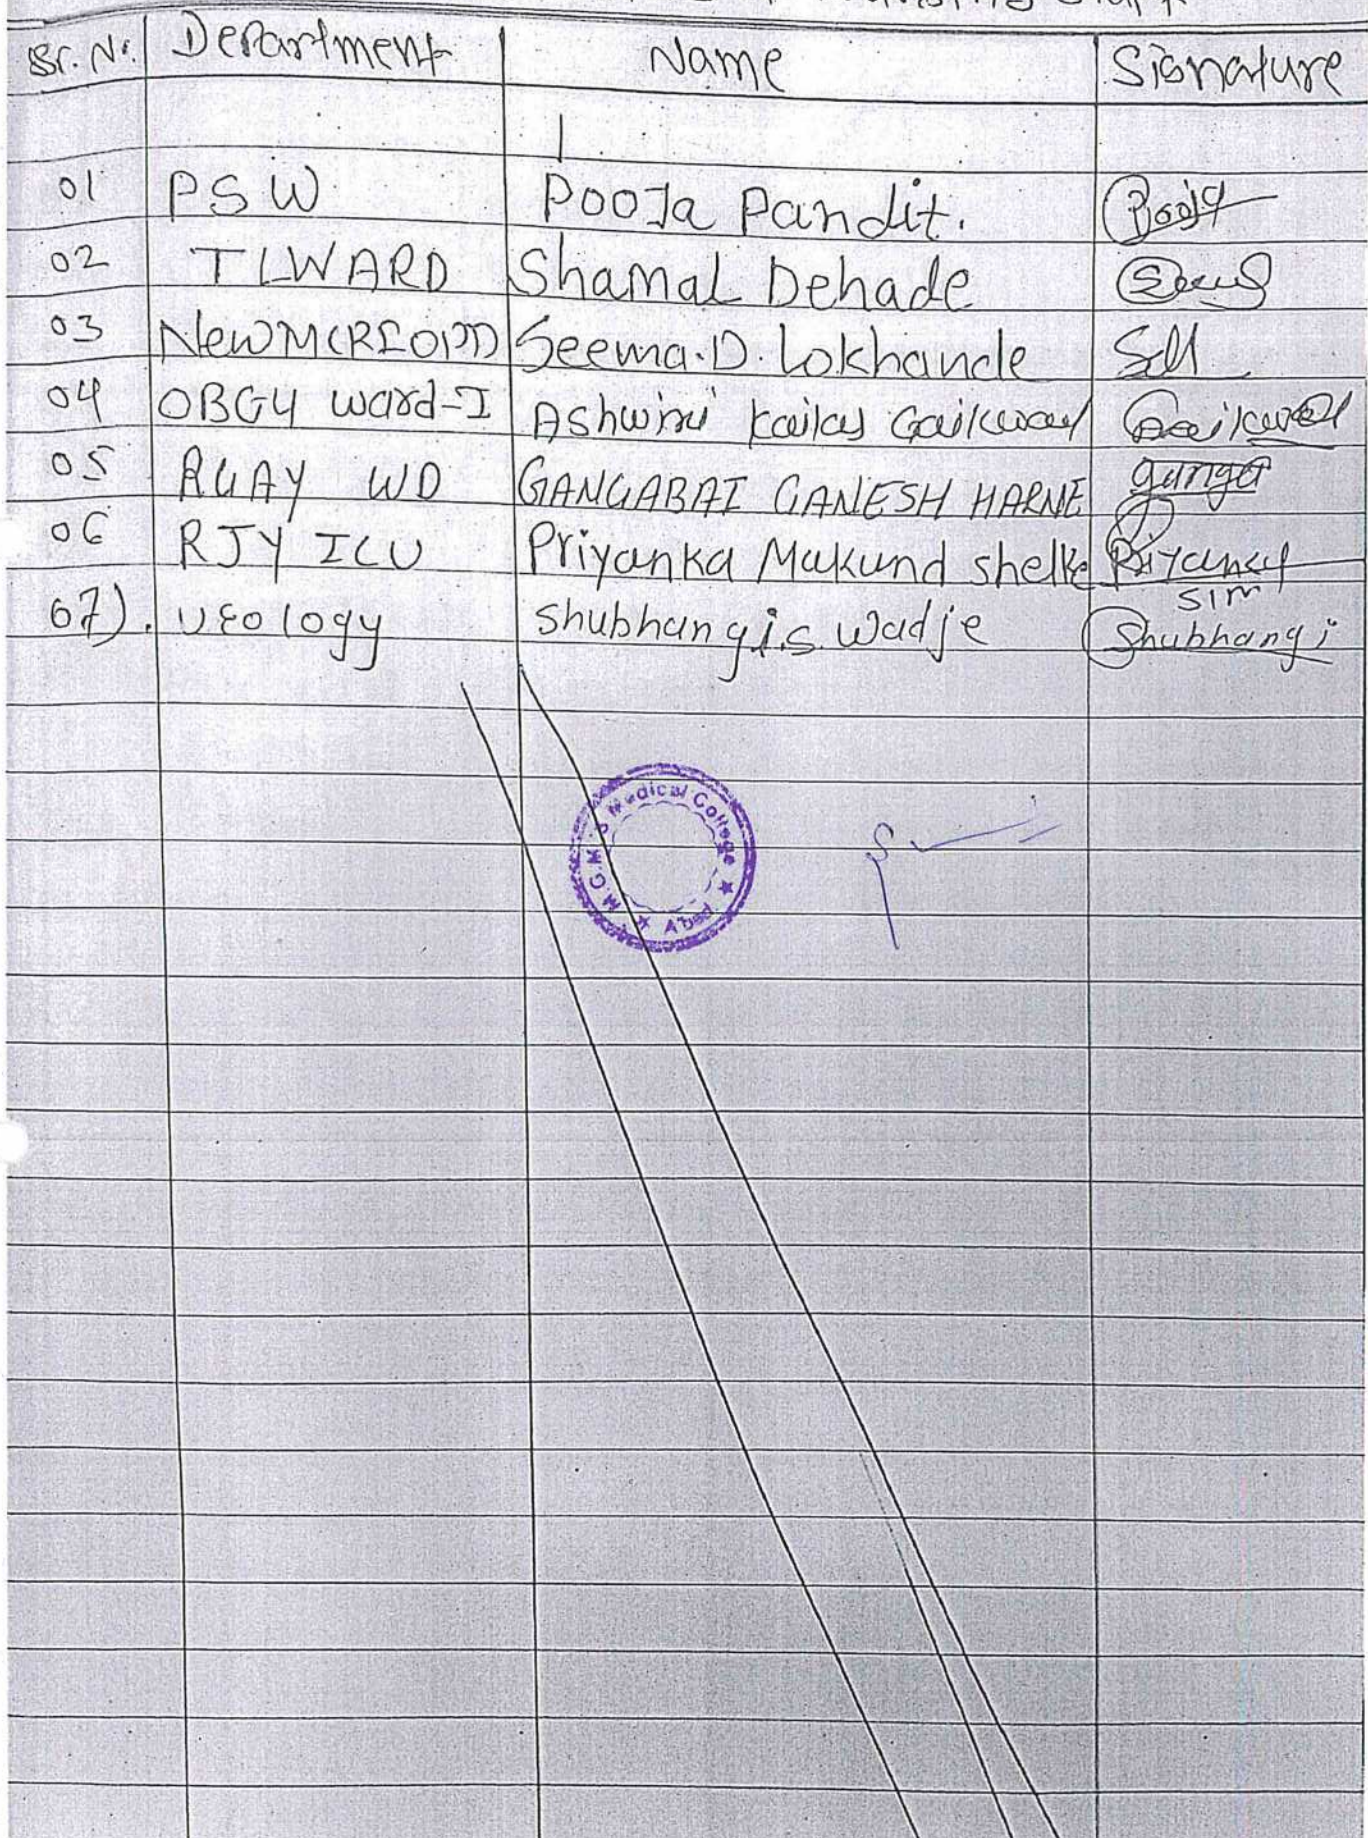 Staff
Sr. No. Department Name Signature
01 PSW Pooja Pandit. Pooja
02 TLWARD Shamal Dehade
03 Seema.D. Lokhande
04 OBGY Ward-I Ashwini Kailas Gaikwad Gaikwad
05 RGAY WD GANGABAI GANESH HARNE ganga
06 RJY ICU Priyanka Mukund shelke Priyanka
sim
07). Urology shubhangi.s. Wadje Shubhangi
M.G.M'S Medical College ★ A'bad. ★